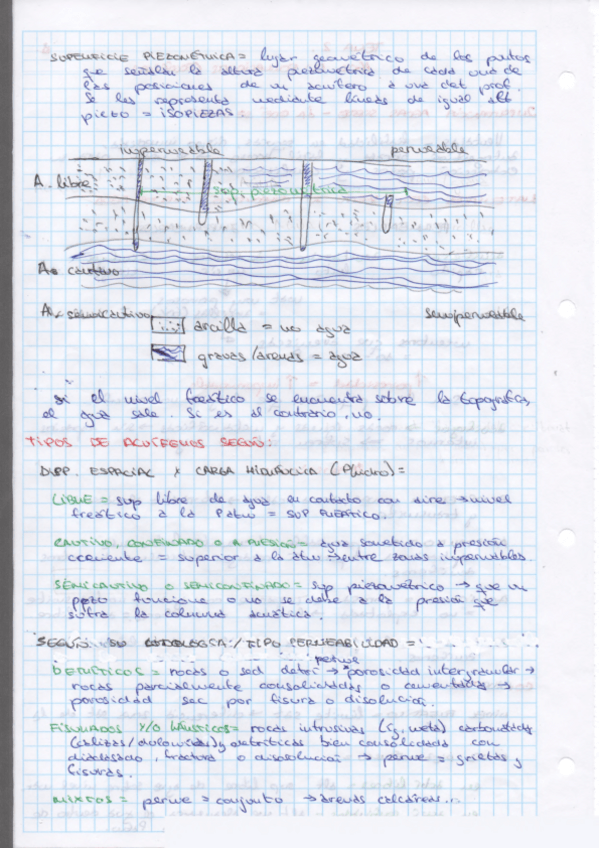 SUPERFICIE PIEZOMÉTRICA = lugar geométrico de los puntos
que señalan la altura piezométrica de cada una de
las posiciones de un acuífero a una det prof.
Se les representa mediante líneas de igual alt
piezo = ISOPIEZAS
impermeable permeable
A. libre
sup. piezométrica
A. cautivo
A. semicautivo semipermeable
arcilla = no agua
gravas/arenas = agua
Si el nivel freático se encuentra sobre la topografía,
el agua sale. Si es al contrario, no.
TIPOS DE ACUÍFEROS SEGÚN:
DISP. ESPACIAL Y CARGA HIDRÚLICA (Phidro) =
LIBRE = sup libre de agua en contacto con aire → nivel
freático a la Patm = SUP FREÁTICO.
CAUTIVO, CONFINADO O A PRESIÓN = agua sometido a presión
= superior a la atm → entre zonas impermeables.
SEMICAUTIVO O SEMICONFINADO = sup piezométrico → que un
pozo funcione o no se debe a la presión que
sufra la columna acuática.
SEGÚN SU LITOLOGÍA / TIPO PERMEABILIDAD =
perme
DETRÍTICOS = rocas o sed detrí → porosidad intergranular →
rocas parcialmente consolidadas o cementadas →
porosidad sec por fisura o disolución.
FISURADOS Y/O KÁRSTICOS = rocas intrusivas (ig, meta) carbonatadas
(calizas/dolomías) y detríticas bien consolidada con
diaclasado, fractura o disolución → perme = grietas y
fisuras.
MIXTOS = perme = conjunto → arenas calcáreas...